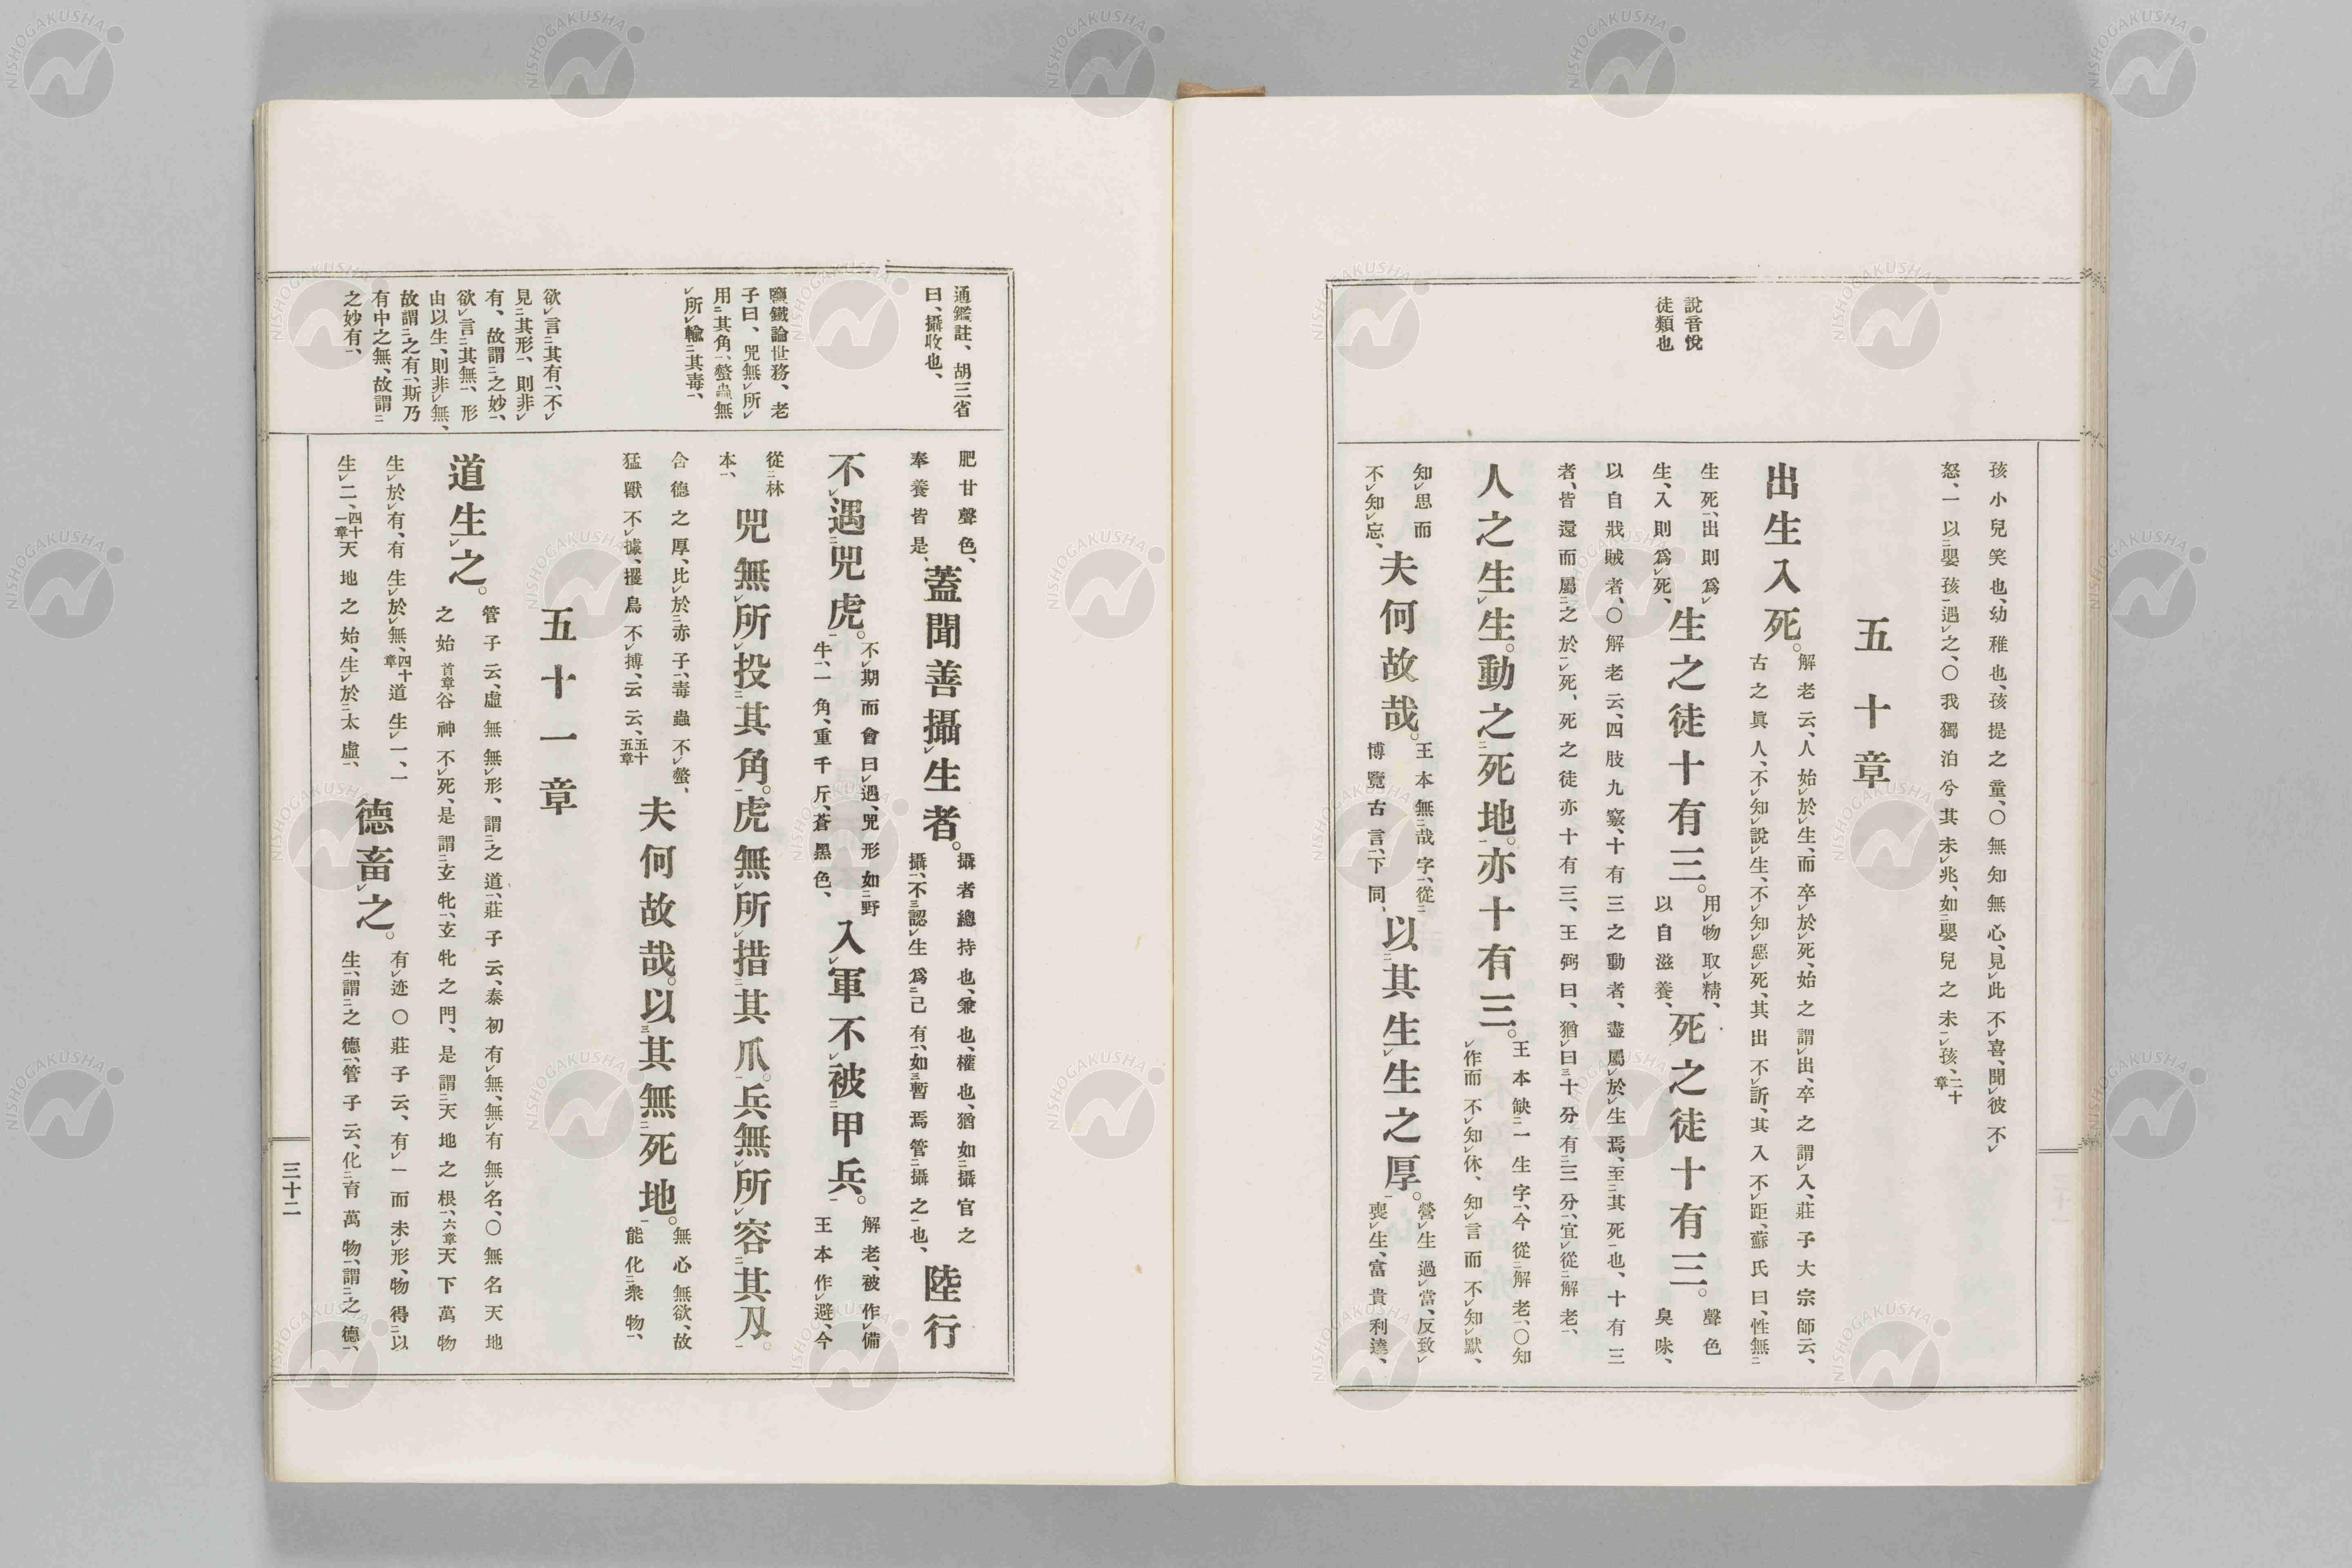 說音悅
徒類也
孩小兒笑也、幼稚也、孩提之童、〇無知無心、見此不喜、聞彼不
怒、一以嬰孩遇之、〇我獨泊兮其未兆、如嬰兒之未孩、二十章
五十章
出生入死。
解老云、人始於生、而卒於死、始之謂出、卒之謂入、莊子大宗師云、
古之眞人、不知說生、不知惡死、其出不訢、其入不距、蘇氏曰、性無
生死、出則爲
生、入則爲死、
生之徒十有三。
用物取精、
以自滋養、
死之徒十有三。
聲色
臭味、
以自戕賊者、〇解老云、四肢九竅、十有三之動者、盡屬於生焉、至其死也、十有三
者、皆還而屬之於死、死之徒亦十有三、王弼曰、猶曰十分有三分、宜從解老、
人之生生。動之死地。亦十有三。
王本缺一生字、今從解老、〇知
作而不知休、知言而不知默、
知思而
不知忘、
夫何故哉。
王本無哉字、從
博覽古言、下同、
以其生生之厚。
營生過當、反致
喪生、富貴利達、
通鑑註、胡三省
曰、攝收也、
鹽鐵論世務、老
子曰、兕無所
用其角、螫蟲無
所輸其毒、
欲言其有、不
見其形、則非
有、故謂之妙、
欲言其無、形
由以生、則非無、
故謂之有、斯乃
有中之無、故謂
之妙有、
肥甘聲色、
奉養皆是、
蓋聞善攝生者。
攝者總持也、兼也、權也、猶如攝官之
攝、不認生爲己有、如暫焉管攝之也、
陸行
不遇兕虎。
不期而會曰遇、兕形如野
牛、一角、重千斤、蒼黑色、
入軍不被甲兵。
解老、被作備
王本作避、今
從林
本、
兕無所投其角。虎無所措其爪。兵無所容其刄。
含德之厚、比於赤子、毒蟲不螫、
猛獸不據、攫鳥不搏、云云、五十五章
夫何故哉。以其無死地。
無心無欲、故
能化衆物、
五十一章
道生之。
管子云、虛無無形、謂之道、莊子云、泰初有無、無有無名、〇無名天地
之始首章谷神不死、是謂玄牝、玄牝之門、是謂天地之根、六章天下萬物
生於有、有生於無、四十章道生一、一
生二、四十一章天地之始、生於太虛、
德畜之。
有迹〇莊子云、有一而未形、物得以
生、謂之德、管子云、化育萬物、謂之德、
三十二
NISHOGAKUSHA